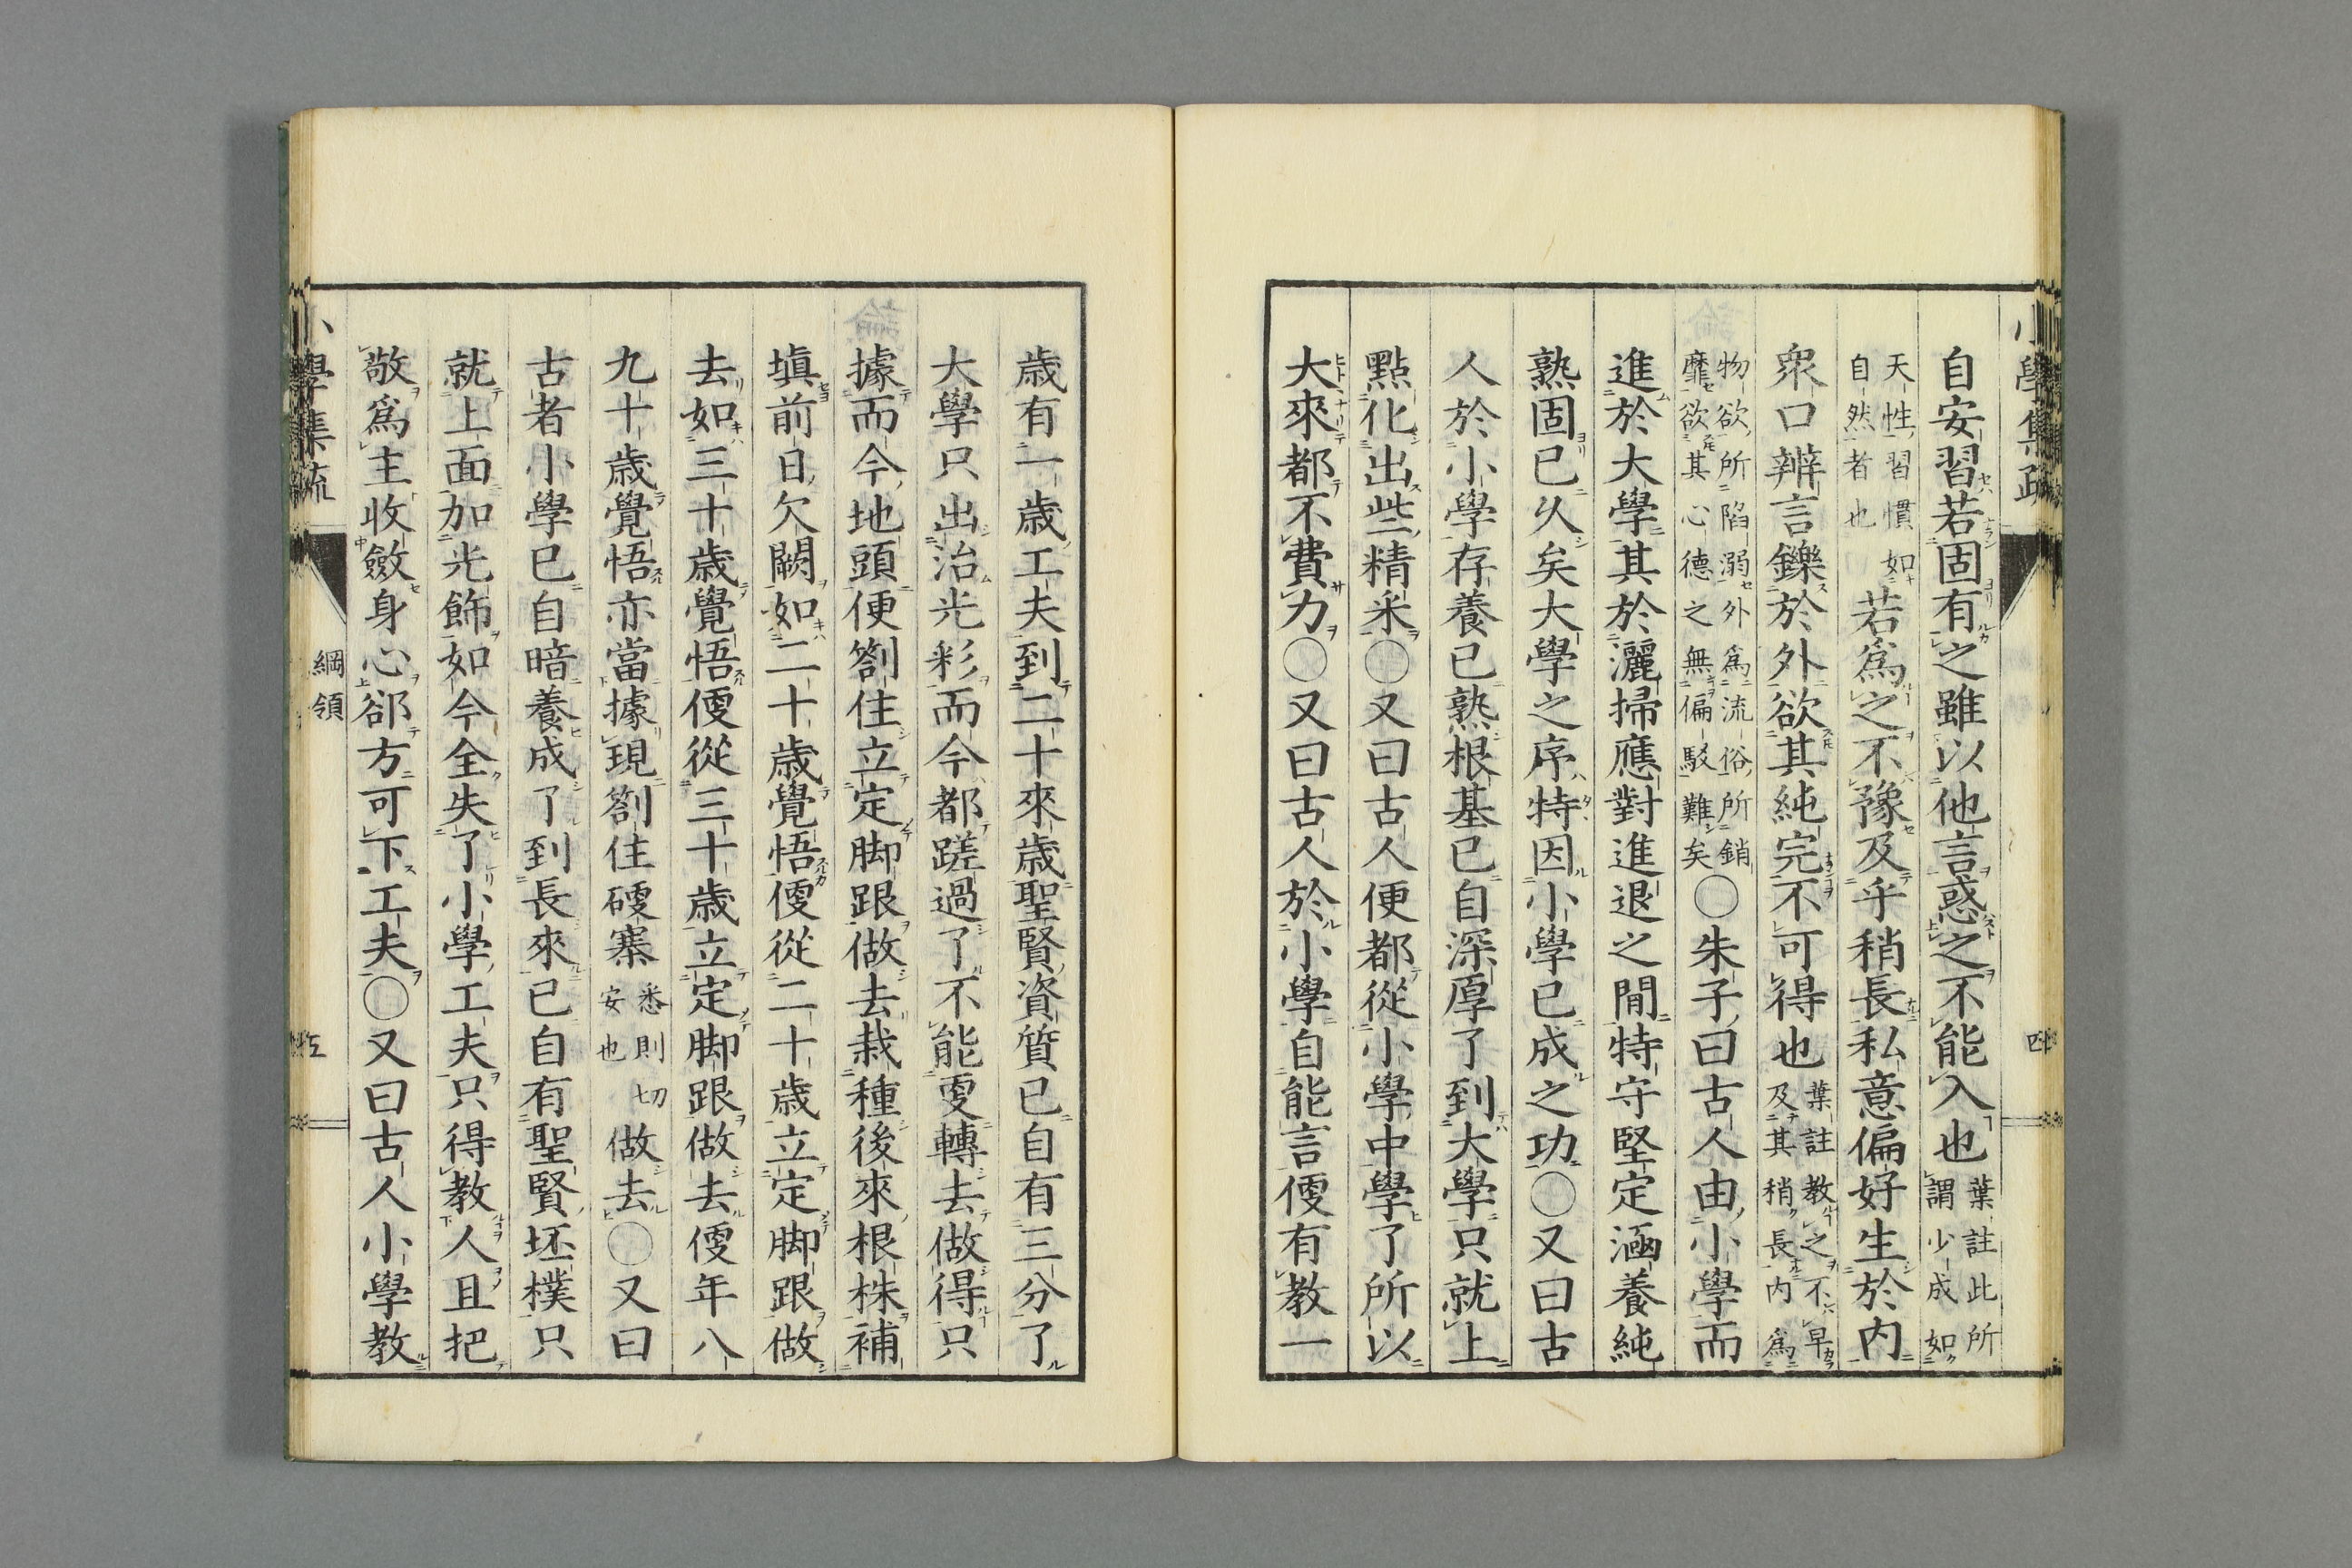 小學集疏
四
自安習若固有之雖以他言惑之不能入也葉註此所謂少成如
天性習慣如自然者也若爲之不豫及乎稍長私意偏好生於内
衆口辨言鑠於外欲其純完不可得也葉註教之不早及其稍長内爲
物欲所陷溺外爲流俗所銷靡欲其心德之無偏駁難矣○朱子曰古人由小學而
進於大學其於灑掃應對進退之間特守堅定涵養純
熟固已久矣大學之序特因小學已成之功○又曰古
人於小學存養已熟根基已自深厚了到大學只就上
點化出些精采○又曰古人便都從小學中學了所以
大來都不費力○又曰古人於小學自能言便有教一
歳有一歳工夫到二十來歳聖賢資質已自有三分了
大學只出治光彩而今都蹉過了不能更轉去做得只
據而今地頭便劄住立定脚跟做去栽種後來根株補
塡前日欠闕如二十歳覺悟便從二十歳立定脚跟做
去如三十歳覺悟便從三十歳立定脚跟做去便年八
九十歳覺悟亦當據現劄住硬寨悉則切安也做去○又曰
古者小學已自暗養成了到長來已自有聖賢坯樸只
就上面加光飾如今全失了小學工夫只得教人且把
敬爲主收斂身心卻方可下工夫○又曰古人小學教
小學集疏
綱領
五